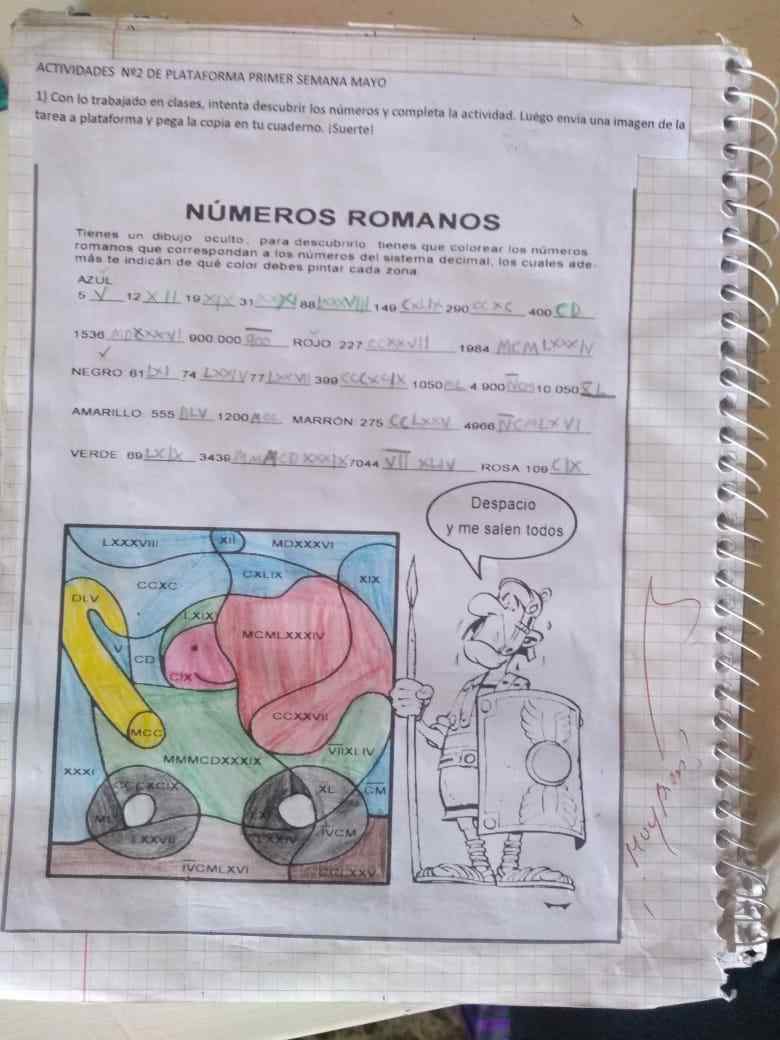 ACTIVIDADES Nº2 DE PLATAFORMA PRIMER SEMANA MAYO
1) Con lo trabajado en clases, intenta descubrir los números y completa la actividad. Luego envía una imagen de la
tarea a plataforma y pega la copia en tu cuaderno. ¡Suerte!
NÚMEROS ROMANOS
Tienes un dibujo oculto, para descubrirlo tienes que colorear los números
romanos que correspondan a los números del sistema decimal, los cuales ade-
más te indicán de qué color debes pintar cada zona
AZUL
5 V 12 XII 19 XIX 31 XXXI 88 LXXXVIII 149 CXLIX 290 CCXC 400 CD
1536 MDXXXVI 900.000 ROJO: 227 CCXXVII 1984 MCMLXXXIV
NEGRO: 61 LXI 74 LXXIV 77 LXXVII 399 CCCXCIX 1050 ML 4.900 10.050
AMARILLO: 555 DLV 1200 MCC MARRÓN: 275 CCLXXV 4966
VERDE: 69 LXIX 3439 MMMCDXXXIX 7044 V̅I̅I̅ XLIV ROSA 109 CIX
Despacio
y me salen todos
LXXXVIII XII MDXXXVI
CCXC CXLIX XIX
DLV LXIX MCMLXXXIV
V CD CIX
MCC CCXXVII
MMMCDXXXIX VIIXLIV
XXXI XL C̅M̅
LXXVII I̅V̅CM
I̅V̅CMLXVI CCLXXV